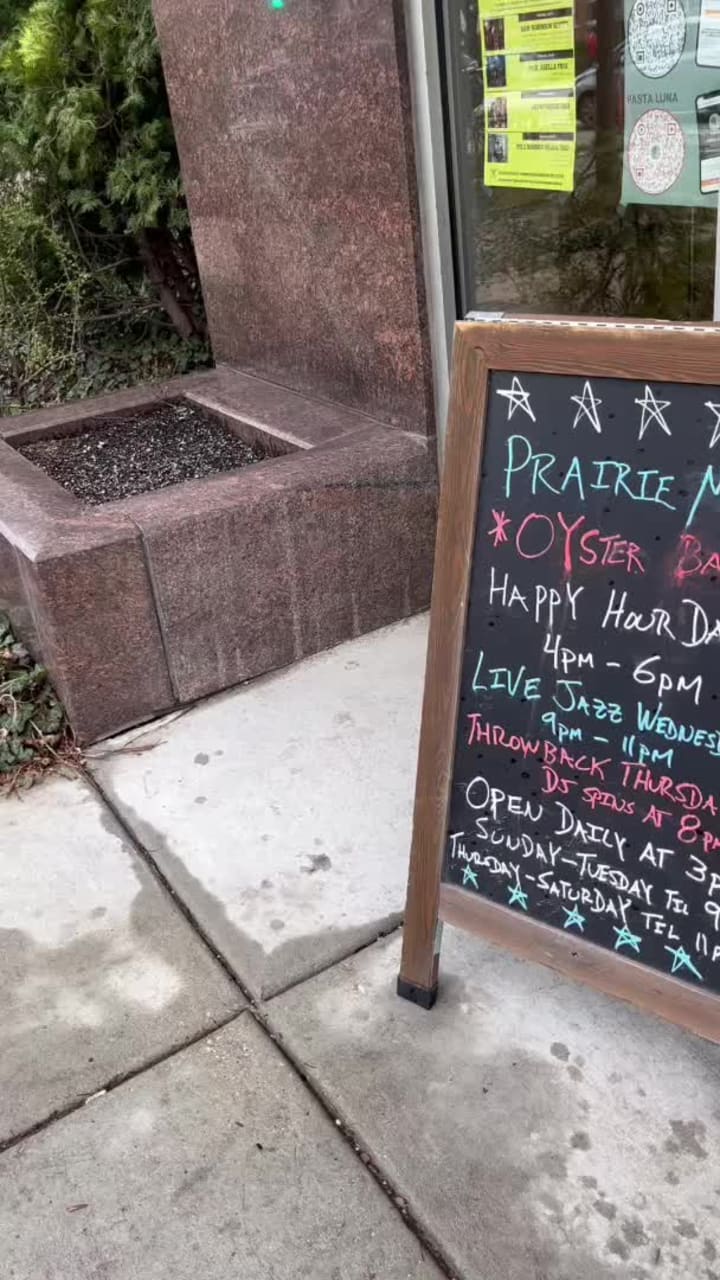 PASTA LUNA
PRAIRIE M
*OYSTER BA
HAPPY HOUR DA
4PM - 6PM
LIVE JAZZ WEDNES
9PM - 11PM
THROWBACK THURSDA
DJ SPINS AT 8PM
OPEN DAILY AT 3P
SUNDAY-TUESDAY TIL 9
THURSDAY-SATURDAY TIL 11P